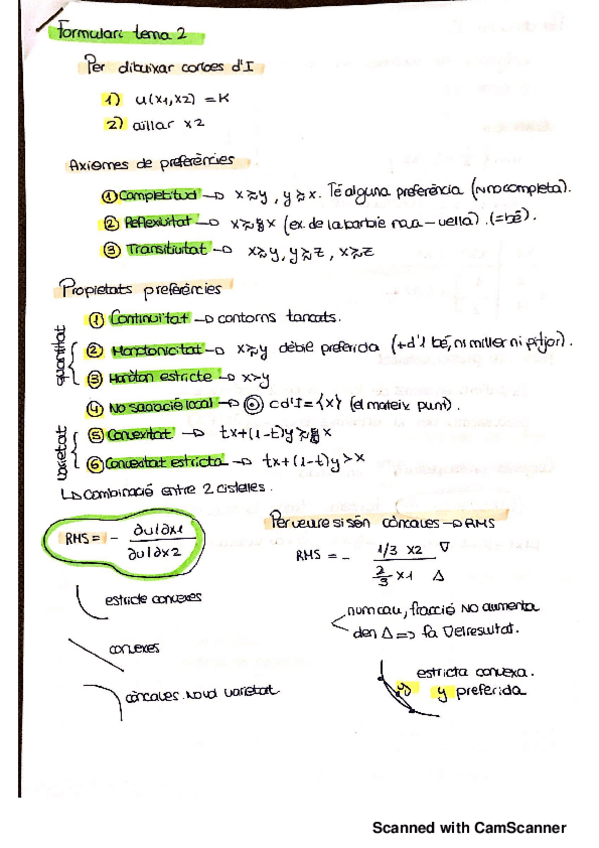 Formulari tema 2
Per dibuixar corbes d'I
1) u(x1,x2) = K
2) aïllar x2
Axiomes de preferències
① Completitud → x≿y, y≿x. Té alguna preferència (N no completa).
② Reflexivitat → x≿x (ex. de la barbie nova-vella). (=bé).
③ Transitivitat → x≿y, y≿z, x≿z
Propietats preferències
① Continuïtat → contorns tancats.
quantitat
② Monotonicitat → x≿y dèbil preferida (+d'1 bé, ni millor ni pitjor).
③ Monòton estricte → x>y
④ No saciació local → cd'I={x} (el mateix punt).
varietat
⑤ Convexitat → tx+(1-t)y≿x
⑥ Convexitat estricta → tx+(1-t)y>x
↳ Combinació entre 2 cistelles.
RMS = - ∂u/∂x1 / ∂u/∂x2
estricte convexes
convexes
còncaves. No vol varietat
Per veure si són còncaves → RMS
RMS = - 1/3 x2 ∇ / 2/3 x1 Δ
num cau, fracció NO augmenta
den Δ => fa ∇ el resultat.
estricta convexa.
y y preferida
Scanned with CamScanner